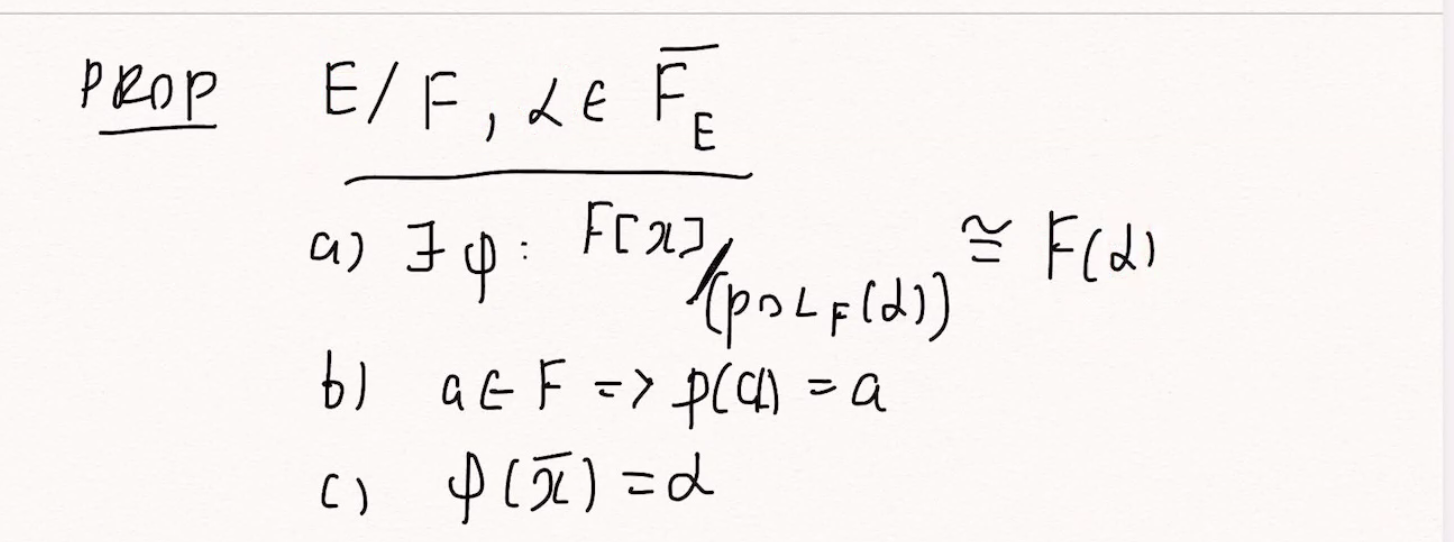 PROP E/F, α ∈ F̅_E
a) ∃ φ: F[x]/(POL_F(α)) ≅ F(α)
b) a ∈ F => φ(a) = a
c) φ(x̅) = α